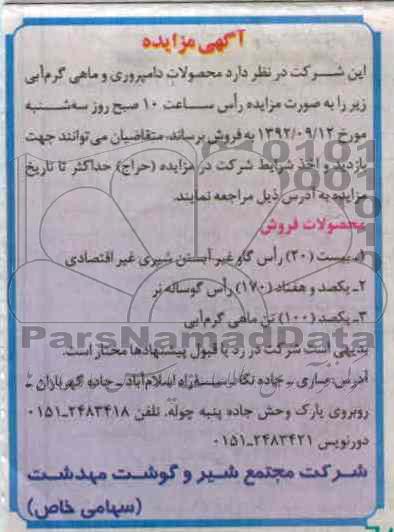 آگهی مزایده
این شرکت در نظر دارد محصولات دامپروری و ماهی گرم‌آبی
زیر را به صورت مزایده رأس ساعت ۱۰ صبح روز سه‌شنبه
مورخ ۱۳۹۲/۰۹/۱۲ به فروش برساند. متقاضیان می‌توانند جهت
بازدید و اخذ شرایط شرکت در مزایده (حراج) حداکثر تا تاریخ
مزایده به آدرس ذیل مراجعه نمایند.
محصولات فروش
۱ـ بیست (۲۰) رأس گاو غیر آبستن شیری غیر اقتصادی
۲ـ یکصد و هفتاد (۱۷۰) رأس گوساله نر
۳ـ یکصد (۱۰۰) تن ماهی گرم‌آبی
ParsNamadData
بدیهی است شرکت در رد یا قبول پیشنهادها مختار است.
آدرس: ساری ـ جاده نکا ـ سه‌راه اسلام‌آباد ـ جاده گهرباران ـ
روبروی پارک وحش جاده پنبه چوله. تلفن ۲۴۸۳۴۱۸ـ۰۱۵۱
دورنویس ۲۴۸۳۴۲۱ـ۰۱۵۱
شرکت مجتمع شیر و گوشت مهدشت
(سهامی خاص)